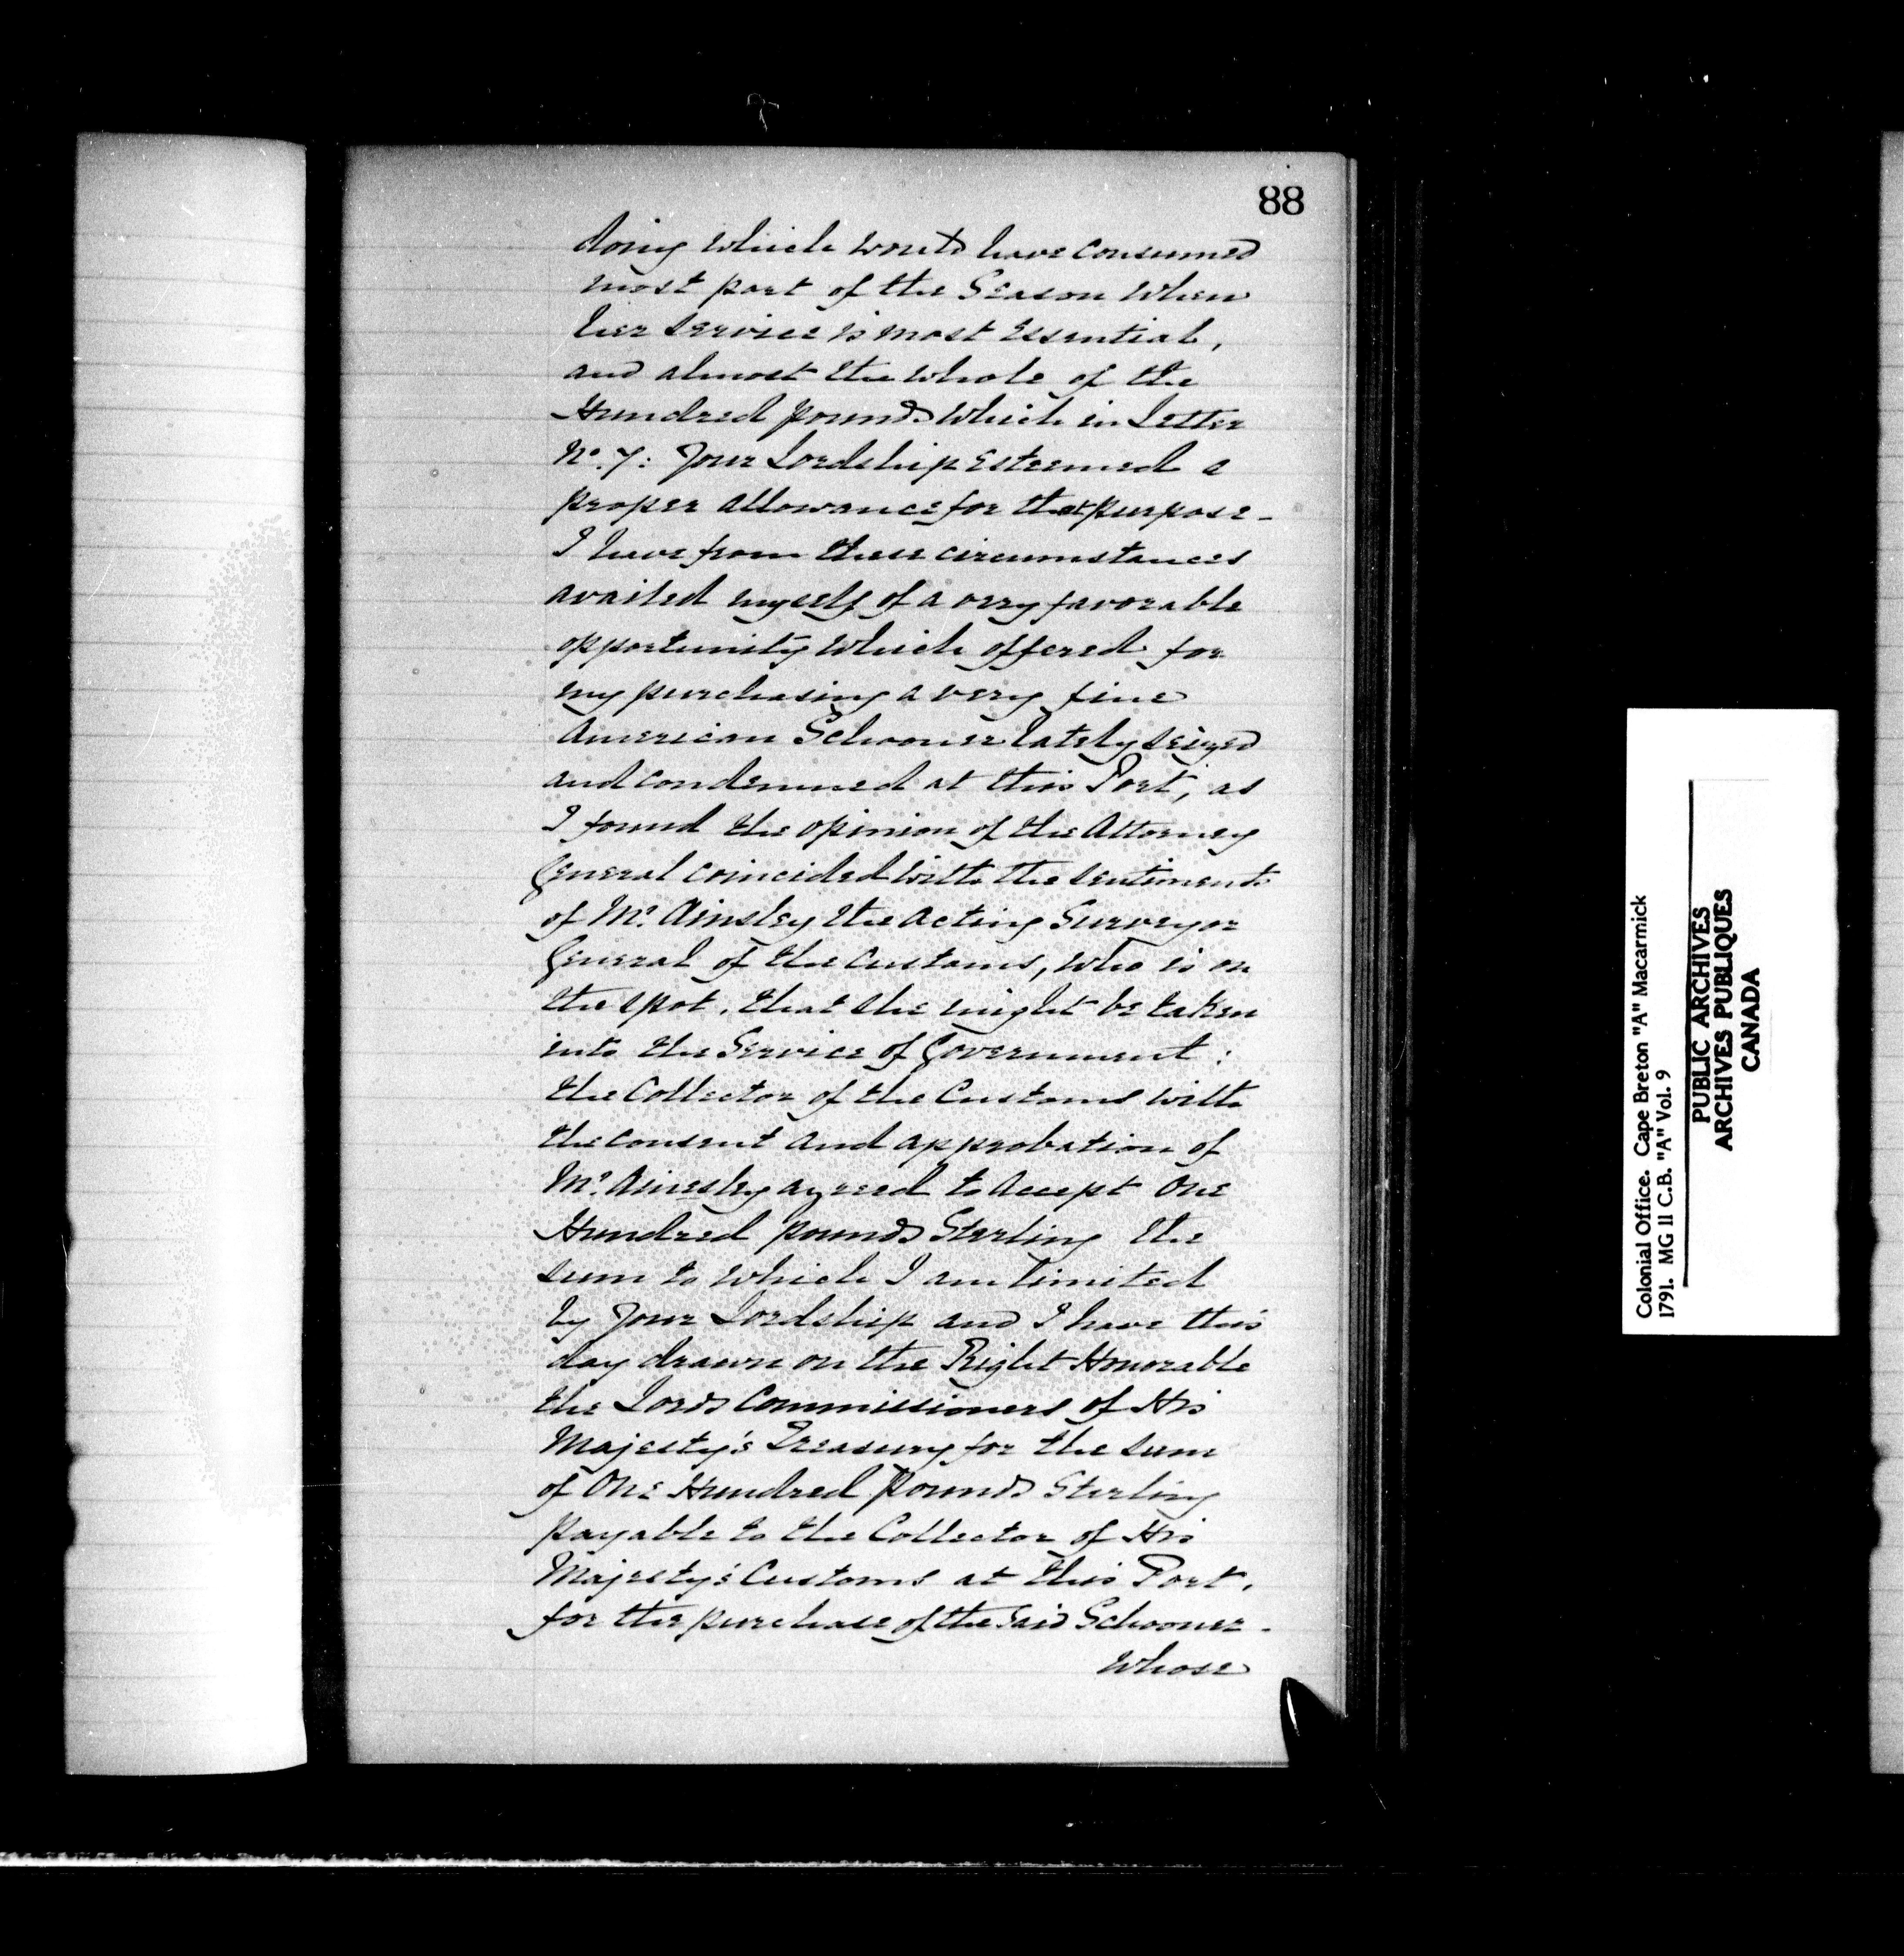 88
doing which would have consumed
most part of the Season when
her service is most Essential,
and almost the whole of the
Hundred pounds which in Letter
No. 7: Your Lordship Esteemed a
proper allowance for that purpose -
I have from these circumstances
availed myself of a very favorable
opportunity which offered for
my purchasing a very fine
American Schooner lately seized
and condemned at this Port, as
I found the opinion of the Attorney
General coincided with the sentiments
of Mr. Ainsley the Acting Surveyor
General of the Customs, who is on
the spot, that she might be taken
into the Service of Government:
the Collector of the Customs with
the consent and approbation of
Mr. Ainesley agreed to accept One
Hundred pounds Sterling the
sum to which I am limited
by Your Lordship and I have this
day drawn on the Right Honorable
the Lords Commissioners of His
Majesty's Treasury for the sum
of One Hundred pounds Sterling
payable to the Collector of His
Majesty's Customs at this Port,
for the purchase of the said Schooner.
whose
Colonial Office. Cape Breton "A" Macarmick
1791. MG 11 C.B. "A" Vol. 9
PUBLIC ARCHIVES
ARCHIVES PUBLIQUES
CANADA